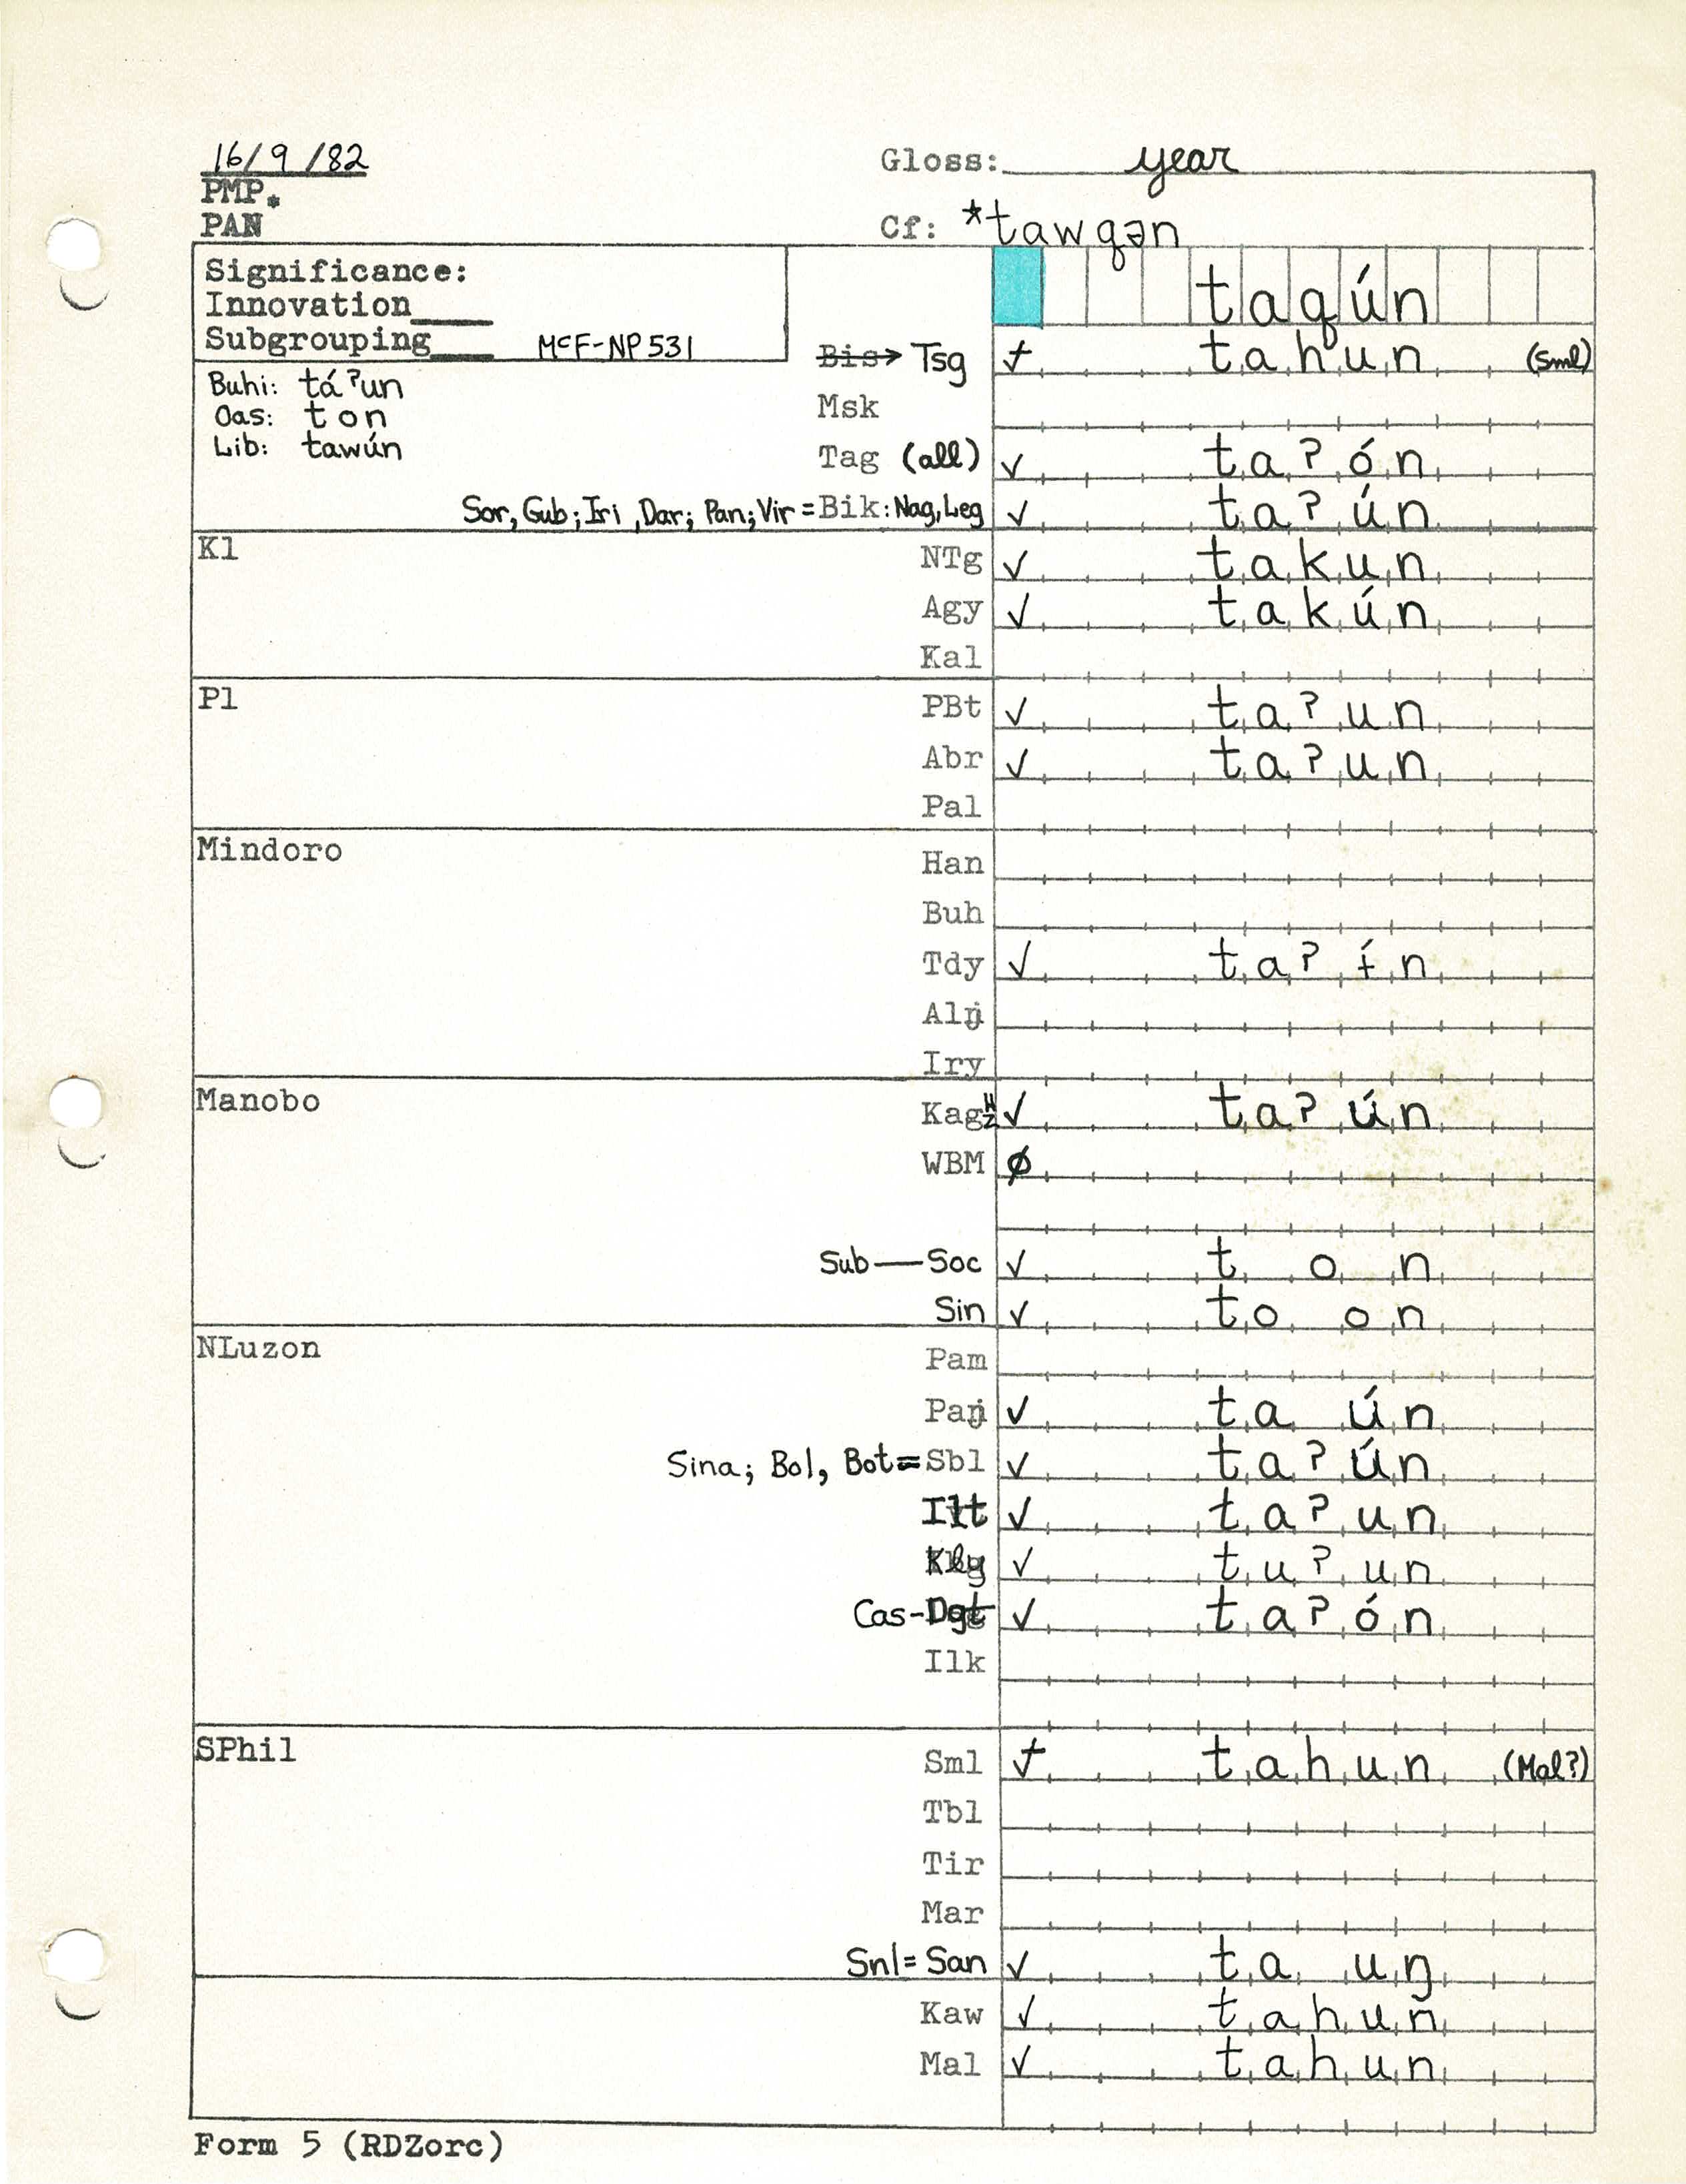 16/9/82 Gloss: year
PMP*
PAN Cf: *tawqən
Significance: taqún
Innovation____
Subgrouping____ McF-NP531
Bis→ Tsg + tahun (Sml)
Buhi: táʔun
Oas: ton
Lib: tawún
Msk
Tag (all) ✓ taʔón
Sor, Gub; Iri, Dar; Pan; Vir = Bik: Nag, Leg ✓ taʔún
Kl NTg ✓ takun
Agy ✓ takún
Kal
Pl PBt ✓ taʔun
Abr ✓ taʔun
Pal
Mindoro Han
Buh
Tdy ✓ taʔɨ́n
Alŋ
Iry
Manobo Kag ✓ taʔún
WBM ∅
Sub—Soc ✓ t o n
Sin ✓ to on
NLuzon Pam
Paŋ ✓ ta ún
Sina; Bol, Bot = Sbl ✓ taʔún
Ilt ✓ taʔun
Kly ✓ tuʔun
Cas-Dgt ✓ taʔón
Ilk
SPhil Sml + tahun (Mal?)
Tbl
Tir
Mar
Snl = San ✓ ta uŋ
Kaw ✓ tahun
Mal ✓ tahun
Form 5 (RDZorc)